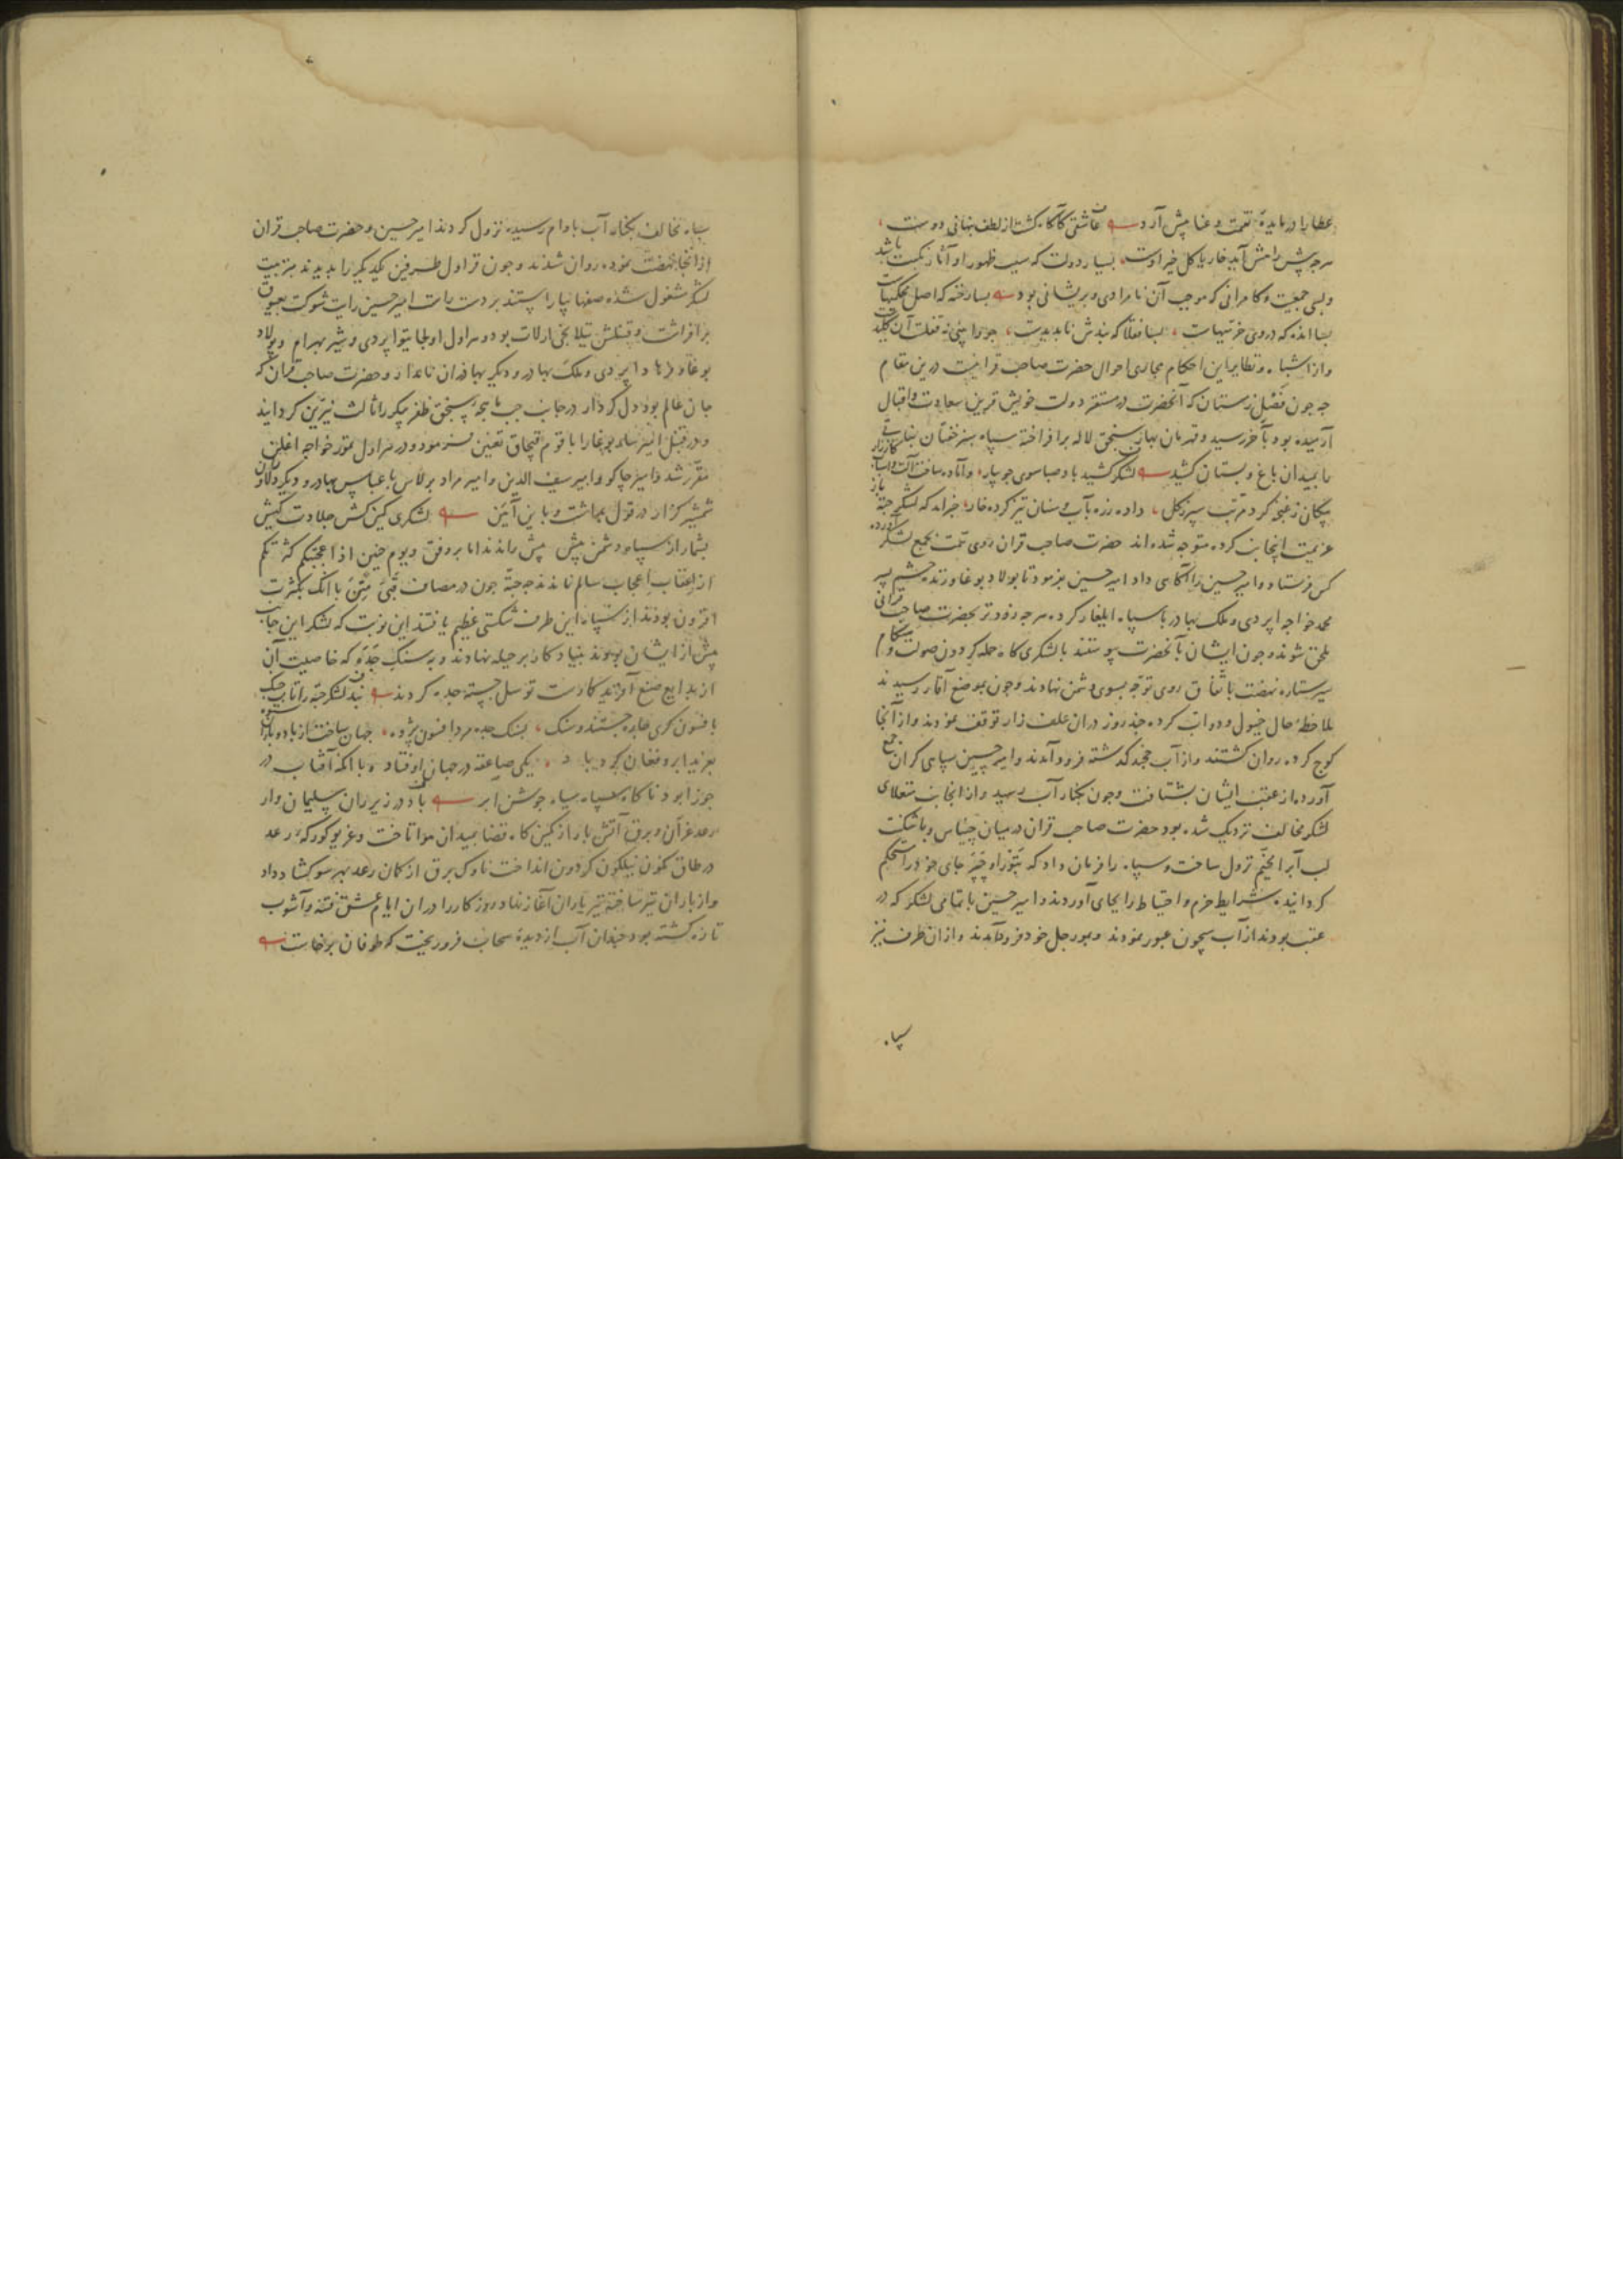 عطا را در مایدهٔ نعمت و عنا پیش آرد عاشقی کآگاه گشت از لطف پنهانی دوست
هرچه پیش راهش آید خار یا گل خیر اوست بسیار دولت که سبب ظهور او آثار نکبت باشد
و بسی جمعیت و کامرانی که موجب آن نامرادی و پریشانی بود بسا رخنه که اصل محکمیهاست
بسا انده که در وی خرمیهاست بسا قفلا که بندش ناپدیدست چو وا بینی نه قفلست آن کلیدست
و از اشباه و نظایر این احکام مجاری احوال حضرت صاحب قرانیست درین مقام
چه چون فصل زمستان که آنحضرت در مستقر دولت خویش قرین سعادت و اقبال
آرمیده بود بآخر رسید و قهرمان بهار سنجق لاله برافراخته سپاه سبز خفتان نباتی
را بمیدان باغ و بستان کشید لشکر کشید باد صبا سوی جویبار و آماده ساخت آلت و اسباب کارزار
پیکانی ز غنچه کرد مرتب سپر ز گل داده زره بآب و سنان تیز کرده خار خبر آمد که لشکر جته باز
عزیمت اینجانب کرده متوجه شده‌اند حضرت صاحب قران روی همت بجمع لشکر آورده
کس فرستاد و امیر حسین را آگاهی داد امیر حسین بفرمود تا پولاد بوغا و زنده حشم پسر
محمد خواجه اپردی و ملک بهادر با سپاه ایلغار کرده هرچه زودتر بحضرت صاحب قرانی
ملحق شوند و چون ایشان بآنحضرت پیوستند با لشکری گاه حمله گردون صولت و هنگام
سیر ستاره نهضت باتفاق روی توجه بسوی دشمن نهادند و چون بموضع آقار رسیدند
ملاحظهٔ حال خیول و دواب کرده چند روز دران علف زار توقف نمودند و از آنجا
کوچ کرده روان گشتند و از آب خجند گذشته فرود آمدند و امیر حسین سپاهی گران جمع
آورده از عقب ایشان بشتافت و چون بکنار آب رسید و از انجانب منغلای
لشکر مخالف نزدیک شده بود حضرت صاحب قران در میان چیناس و تاشکنت
لب آب را مخیم نزول ساخت و سپاه را فرمان داد که بتورا و چپر جای خود را محکم
گردانیده شرایط حزم و احتیاط را بجای آوردند و امیر حسین با تمامی لشکر که در
عقب بودند از آب سیحون عبور نمودند و بمورچل خود فرود آمدند و از ان طرف نیز
سپاه
سپاه مخالف بکنار آب بادام رسیده نزول کردند امیر حسین و حضرت صاحب قران
از آنجا نهضت نموده روان شدند و چون قراول طرفین یکدیگر را بدیدند بترتیب
لشکر مشغول شده صفها بیاراستند بر دست راست امیر حسین رایت شوکت بعیوق
برافراشت و قنبلش تیلانجی ارلات بود و هراول اولجایتو اپردی و شیر بهرام و پولاد
بوغا و فرهاد اپردی و ملک بهادر و دیگر بهادران نامدار و حضرت صاحب قران که
جان عالم بود دل کردار در جانب چپ ماهچهٔ سنجق ظفر پیکر را ثالث نیّرین گردانید
و در قنبل امیر ساربوغا را با قوم قبچاق تعیین فرمود و در هراول تمور خواجه اغلن
مقرر شد و امیر جاکو و امیر سیف الدین و امیر مراد برلاس با عباس بهادر و دیگر دلاوران
شمشیر گزار در قول بداشت و باین آیین لشکری کین کش جلادت کیش
بشمار از سپاه دشمن بیش پیش راندند اما بر وفق و یوم حنین اذ اعجبتکم کثرتکم
از اعقاب اعجاب سالم نماندند چه جته چون در مصاف قبی متن با آنک بکثرت
افزون بودند از سپاه این طرف شکستی عظیم یافتند این نوبت که لشکر این جانب
بیش از ایشان بودند بنیاد کار بر حیله نهادند و به سنگ جده که خاصیت آن
از بدایع صنع آفریدگارست توسل جسته جده کردند نبد لشکر جته را تاب جنگ
بافسون گری چاره جستند و سنگ بسنگ جده مرد افسون پژوه جهان ساخت از باد و باران ستوه
بغرید ابر و فغان کرد باد یکی صاعقه در جهان اوفتاد و با آنکه آفتاب در
جوزا بود ناگاه سپاه سیاه جوشن ابر باد در زیر ران سلیمان وار
رعد غران و برق آتش بار از کمین گاه قضا بمیدان هوا تاخت و غریو کورکهٔ رعد
در طاق نگون نیلگون گردون انداخت ناوک برق از کمان رعد بهر سو گشاد داد
و از باران تیر ساخته تیر باران آغاز نهاد روزگار را دران ایام عشق فتنه و آشوب
تازه گشته بود چندان آب از دیدهٔ سحاب فرو ریخت که طوفان برخاست